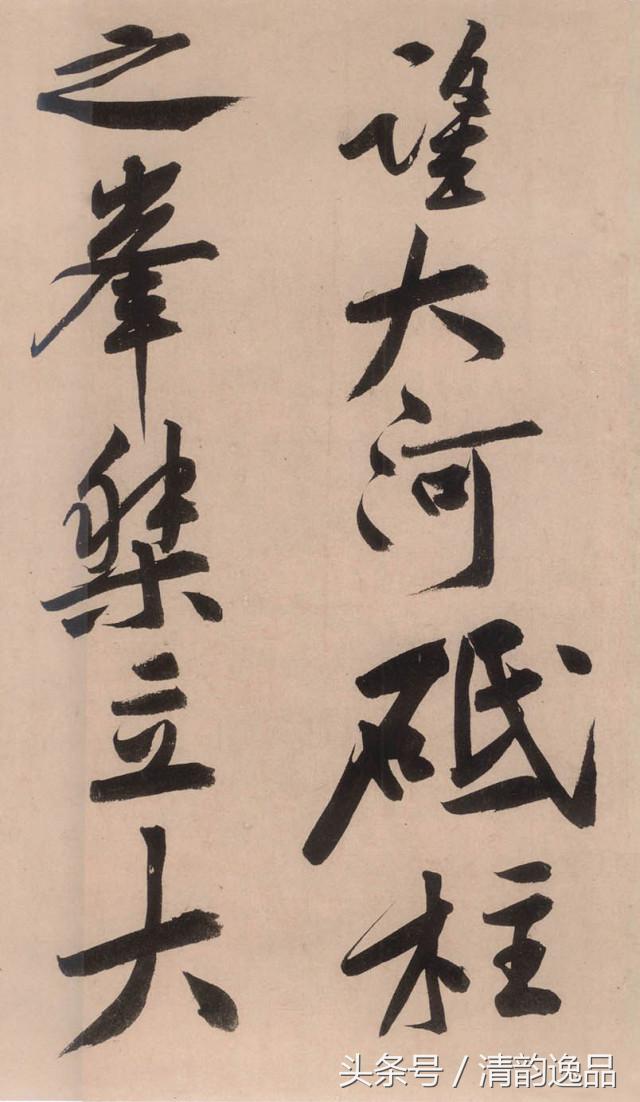 大河砥柱
之峯桀立大
头条号 / 清韵逸品